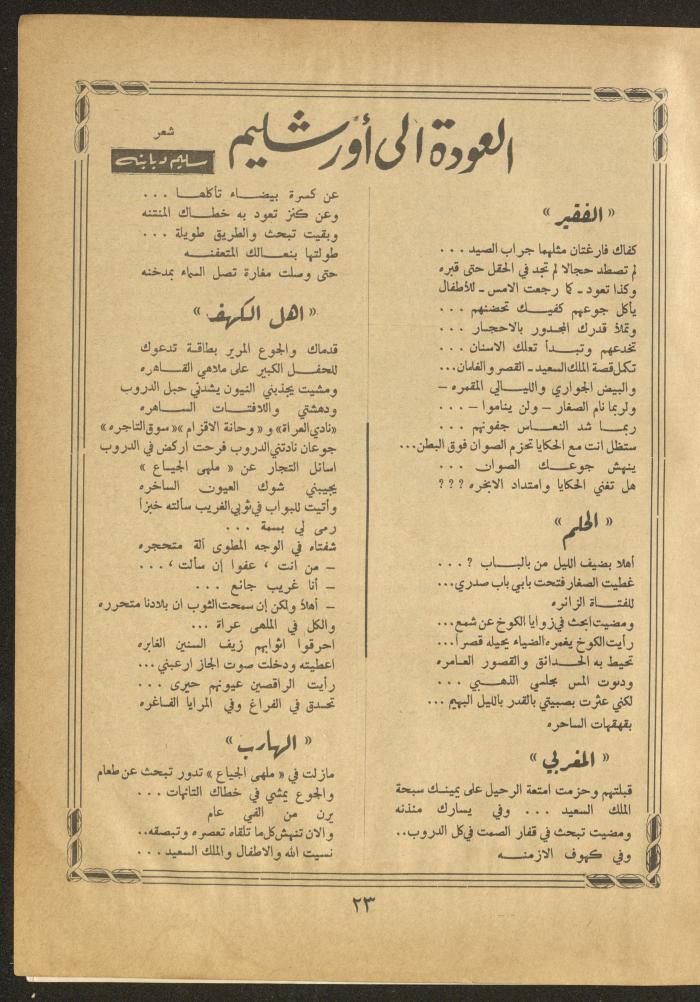 العودة الى أورشليم
شعر
سليم دبابنه
« الفقير »
كفاك فارغتان مثلهما جراب الصيد ...
لم تصطد حجالا لم تجد في الحقل حتى قبره
وكذا تعود ـ كما رجعت الامس ـ للأطفال
يأكل جوعهم كفيك تحضنهم ...
وتملأ قدرك المجدور بالاحجار ...
تخدعهم وتبدأ تعلك الاسنان ...
تكمل قصة الملك السعيد ـ القصر والغلمان...
والبيض الجواري والليالي المقمره –
ولربما نام الصغار – ولن يناموا – ...
ربما شد النعاس جفونهم ...
ستظل انت مع الحكايا تحزم الصوان فوق البطن...
ينهش جوعك الصوان ...
هل تغني الحكايا وامتداد الابخره ؟ ؟ ؟
« الحلم »
أهلا بضيف الليل من بالباب ؟ ...
غطيت الصغار فتحت بابي باب صدري...
للفتاة الزائره
ومضيت ابحث في زوايا الكوخ عن شمع...
رأيت الكوخ يغمره الضياء يحيله قصراً...
تحيط به الحدائق والقصور العامره
ودنوت المس مجلسي الذهبي ...
لكني عثرت بصبيتي بالقدر بالليل البهيم ...
بقهقهات الساحره
« المغربي »
قبلتهم وحزمت امتعة الرحيل على يمينك سبحة
الملك السعيد ... وفي يسارك مئذنه
ومضيت تبحث في قفار الصمت في كل الدروب..
وفي كهوف الازمنه
عن كسرة بيضاء تأكلها ...
وعن كنز تعود به خطاك المنتنه
وبقيت تبحث والطريق طويلة ...
طولتها بنعالك المتعفنه
حتى وصلت مغارة تصل السماء بمدخنه
« اهل الكهف »
قدماك والجوع المرير بطاقة تدعوك
للحفل الكبير على ملاهي القاهره
ومشيت يجذبني النيون يشدني حبل الدروب
ودهشتي واللافتات الساهره
«نادي العراة» و « وحانة الاقزام »« سوق التاجره »
جوعان نادتني الدروب فرحت اركض في الدروب
اسائل التجار عن « ملهى الجياع »
يجيبني شوك العيون الساخره
وأتيت للبواب في ثوبي الغريب سألته خبزاً
رمى لي بسمة ...
شفتاه في الوجه المطوى آلة متحجره
– من انت ، عفوا إن سألت ، ...
– أنا غريب جائع ...
– أهلاً ولكن إن سمحت الثوب ان بلادنا متحرره
والكل في الملهى عراة ...
احرقوا اثوابهم زيف السنين الغابره
اعطيته ودخلت صوت الجاز ارعبني ...
رأيت الراقصين عيونهم حيرى ...
تحدق في الفراغ وفي المرايا الفاغره
« الهارب »
مازلت في « ملهى الجياع » تدور تبحث عن طعام
والجوع يمشي في خطاك التائهات ...
يرن من الفي عام
والان تنهش كل ما تلقاه تعصره وتبصقه..
نسيت الله والاطفال والملك السعيد ...
٢٣